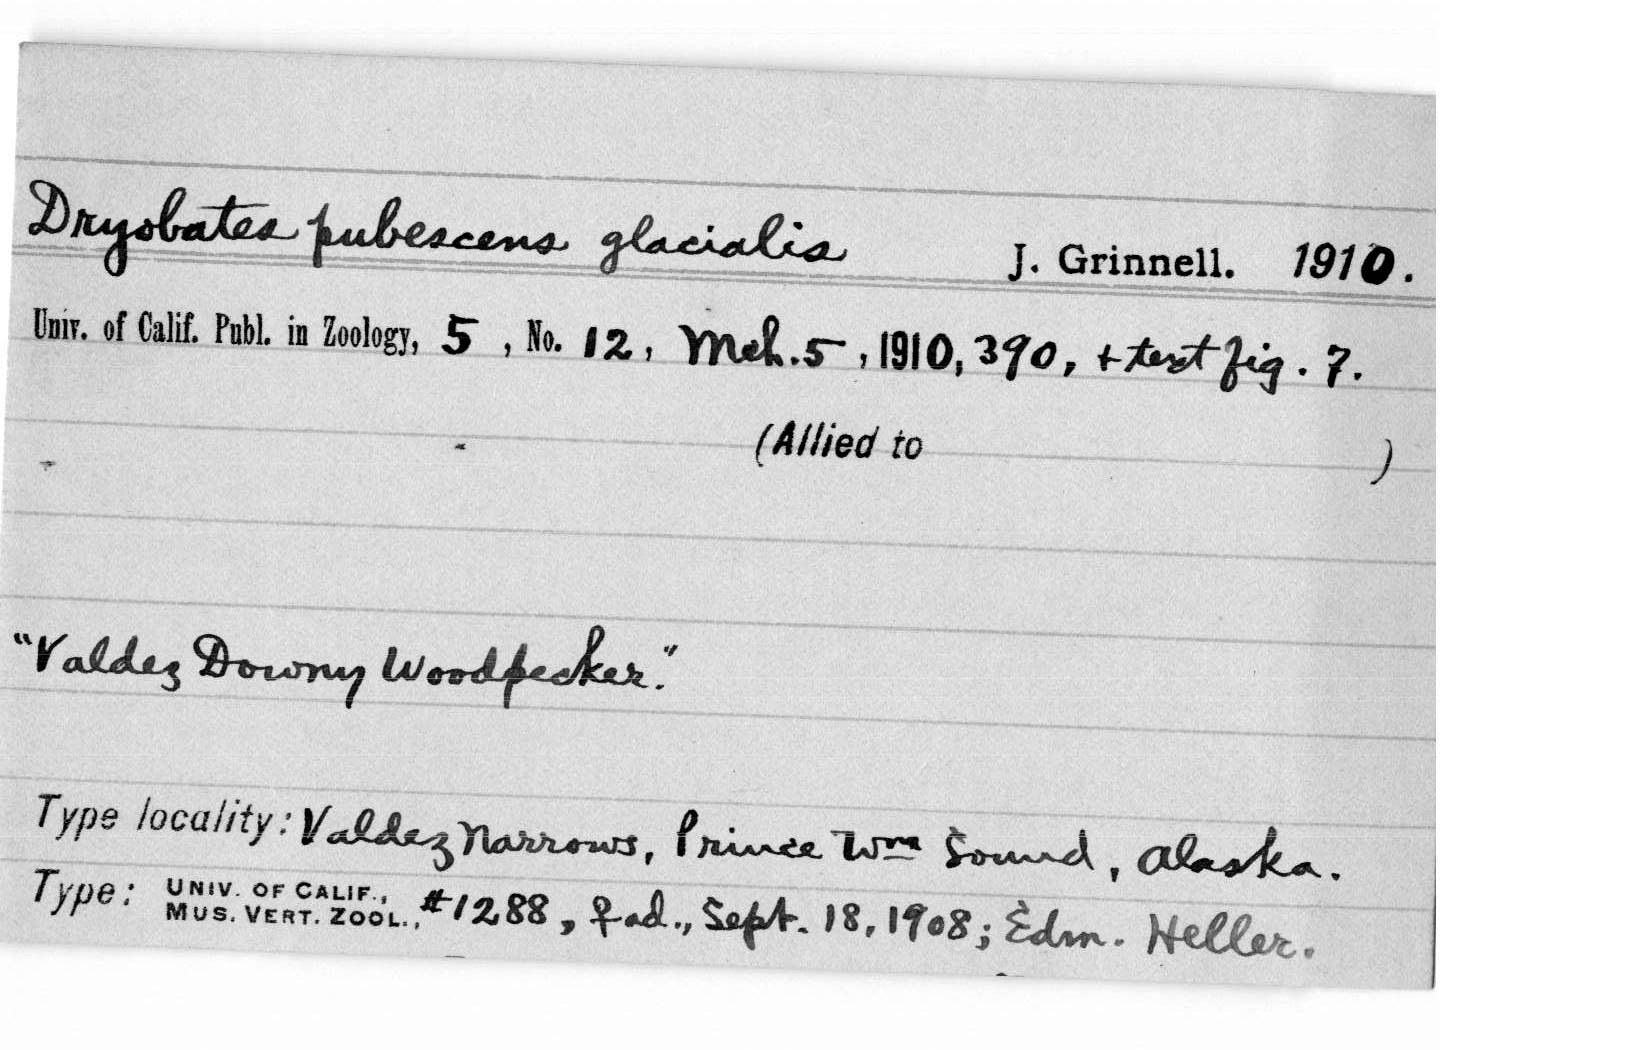 Dryobates pubescens glacialis J. Grinnell. 1910.
Univ. of Calif. Publ. in Zoology, 5, No. 12, Mch. 5, 1910, 390, + text fig. 7.
(Allied to )
"Valdez Downy Woodpecker."
Type locality: Valdez Narrows, Prince Wm Sound, Alaska.
Type: UNIV. OF CALIF., MUS. VERT. ZOOL., #1288, ♀ ad., Sept. 18, 1908; Edm. Heller.